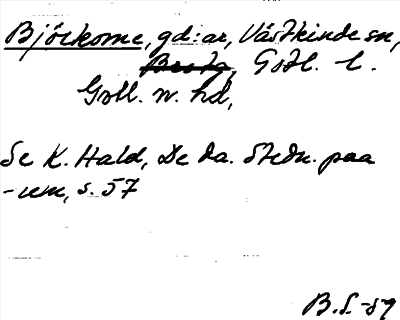 Björkome, gd:ar, Västkinde sn,
Gotl. l.
Gotl. n. hd,
Se K. Hald, De da. Stedn. paa
-um, s. 57
B.S.-59